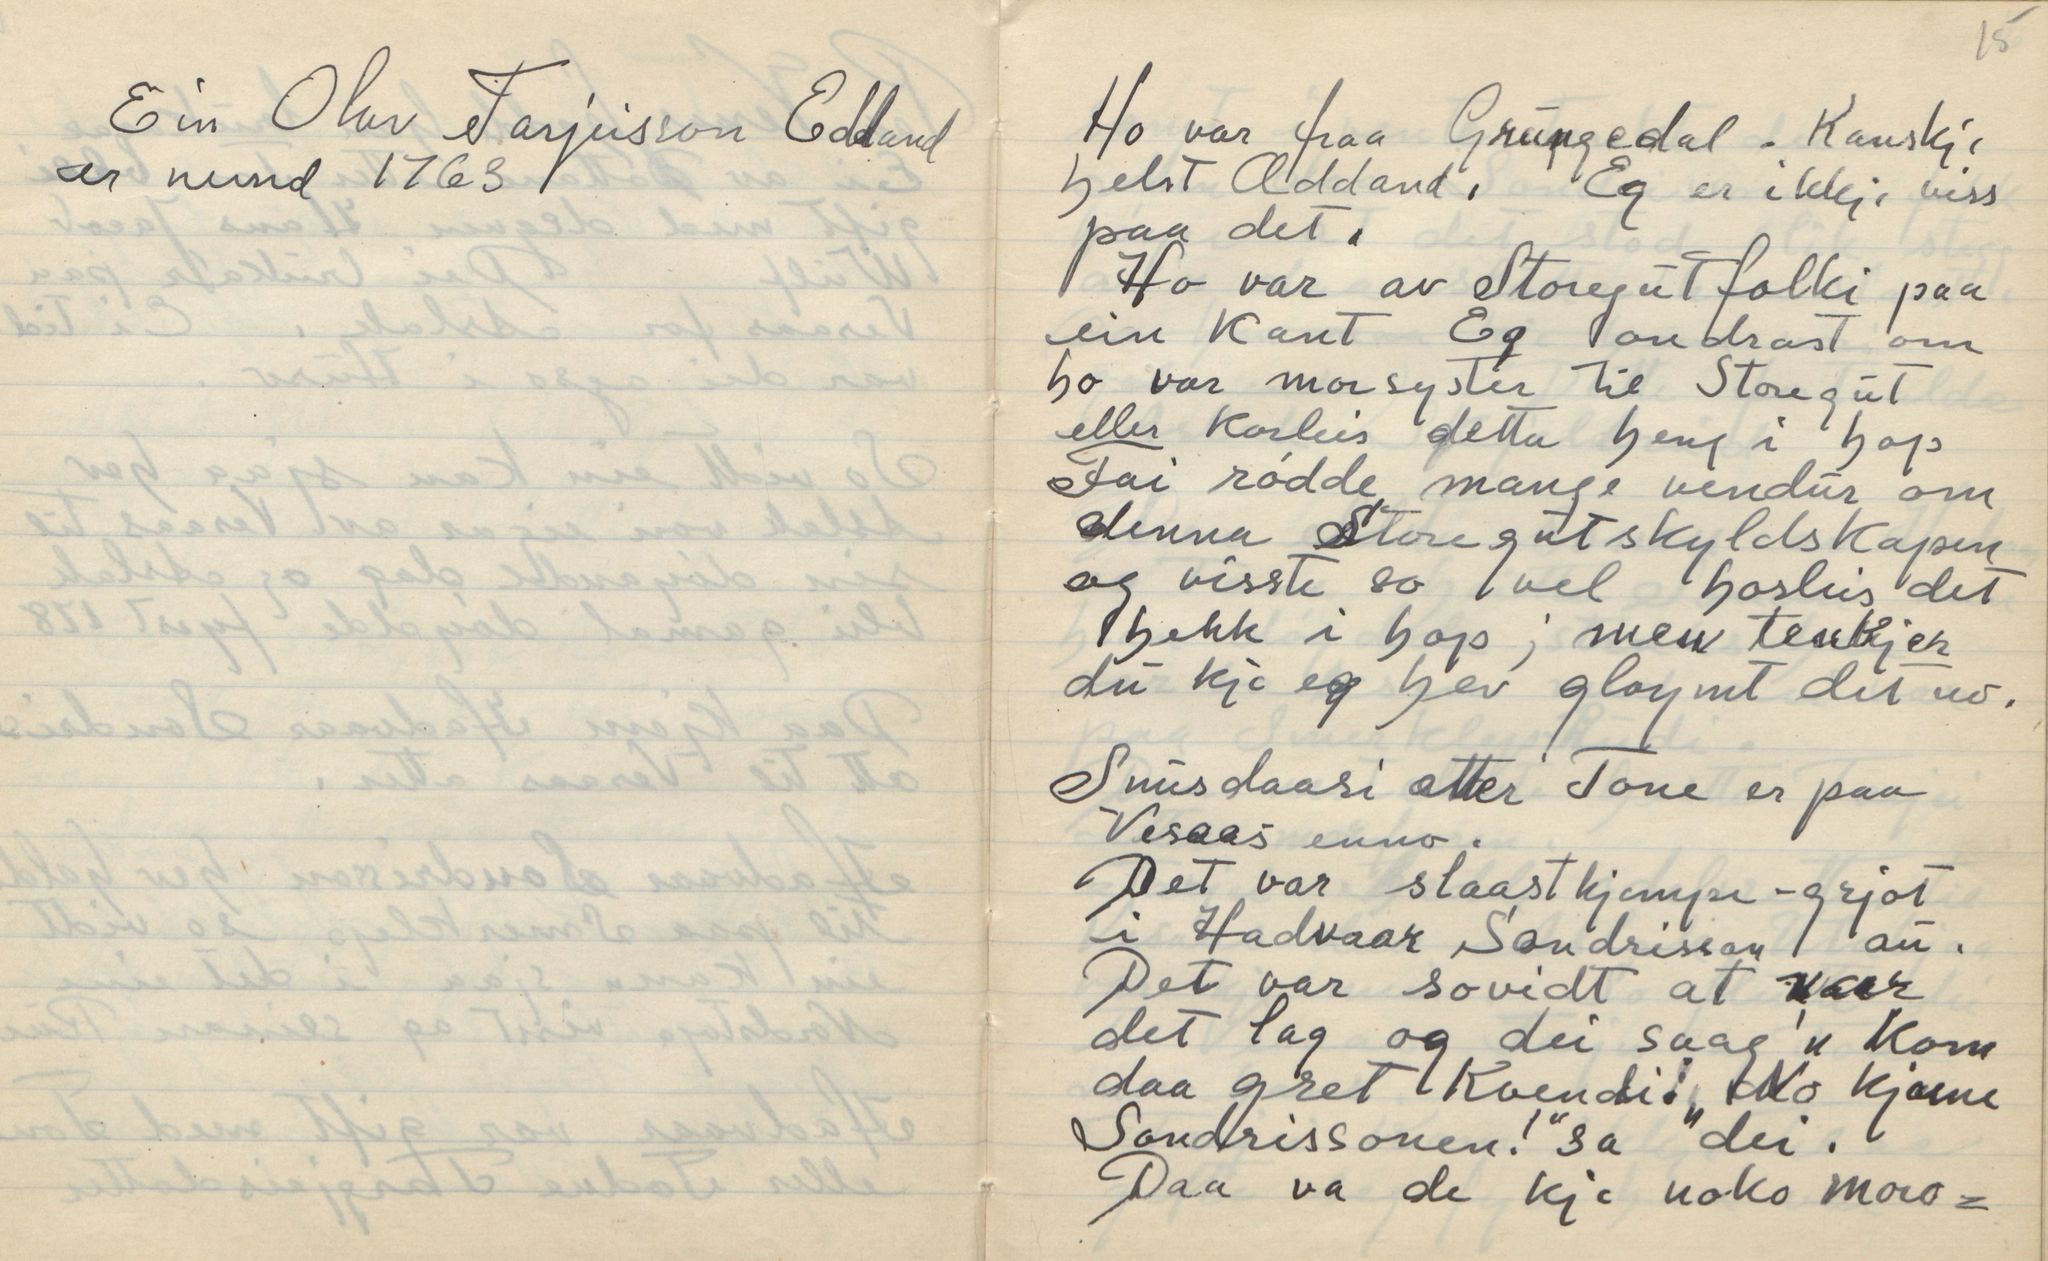 Ein Olav Tarjeisson Edland
er nemnd 1763
15
Ho var fraa Grungedal. Kanskje
helst Øddand. Eg er ikkje viss
paa det.
Ho var av Storegut folki paa
ein kant Eg ondrast om
ho var morsyster til Storegut
eller korleis detta heng i hop
Fai rødde mange vendur om
denna Storegutskyldskapen
og visste so vel hosleis det
hekk i hop; men tenkjer
du kje eg hev gløymt det no.
Snusdaasi etter Tone er paa
Vesaas enno.
Det var slaastkjempe-grjot
i Hadvaar Sondrisson au.
Det var sovidt at naar
det lag og dei saag'n kom
daa gret kvendi: "No kjeme
Sondrissonen!" sa dei.
Daa va de kje noko moro=